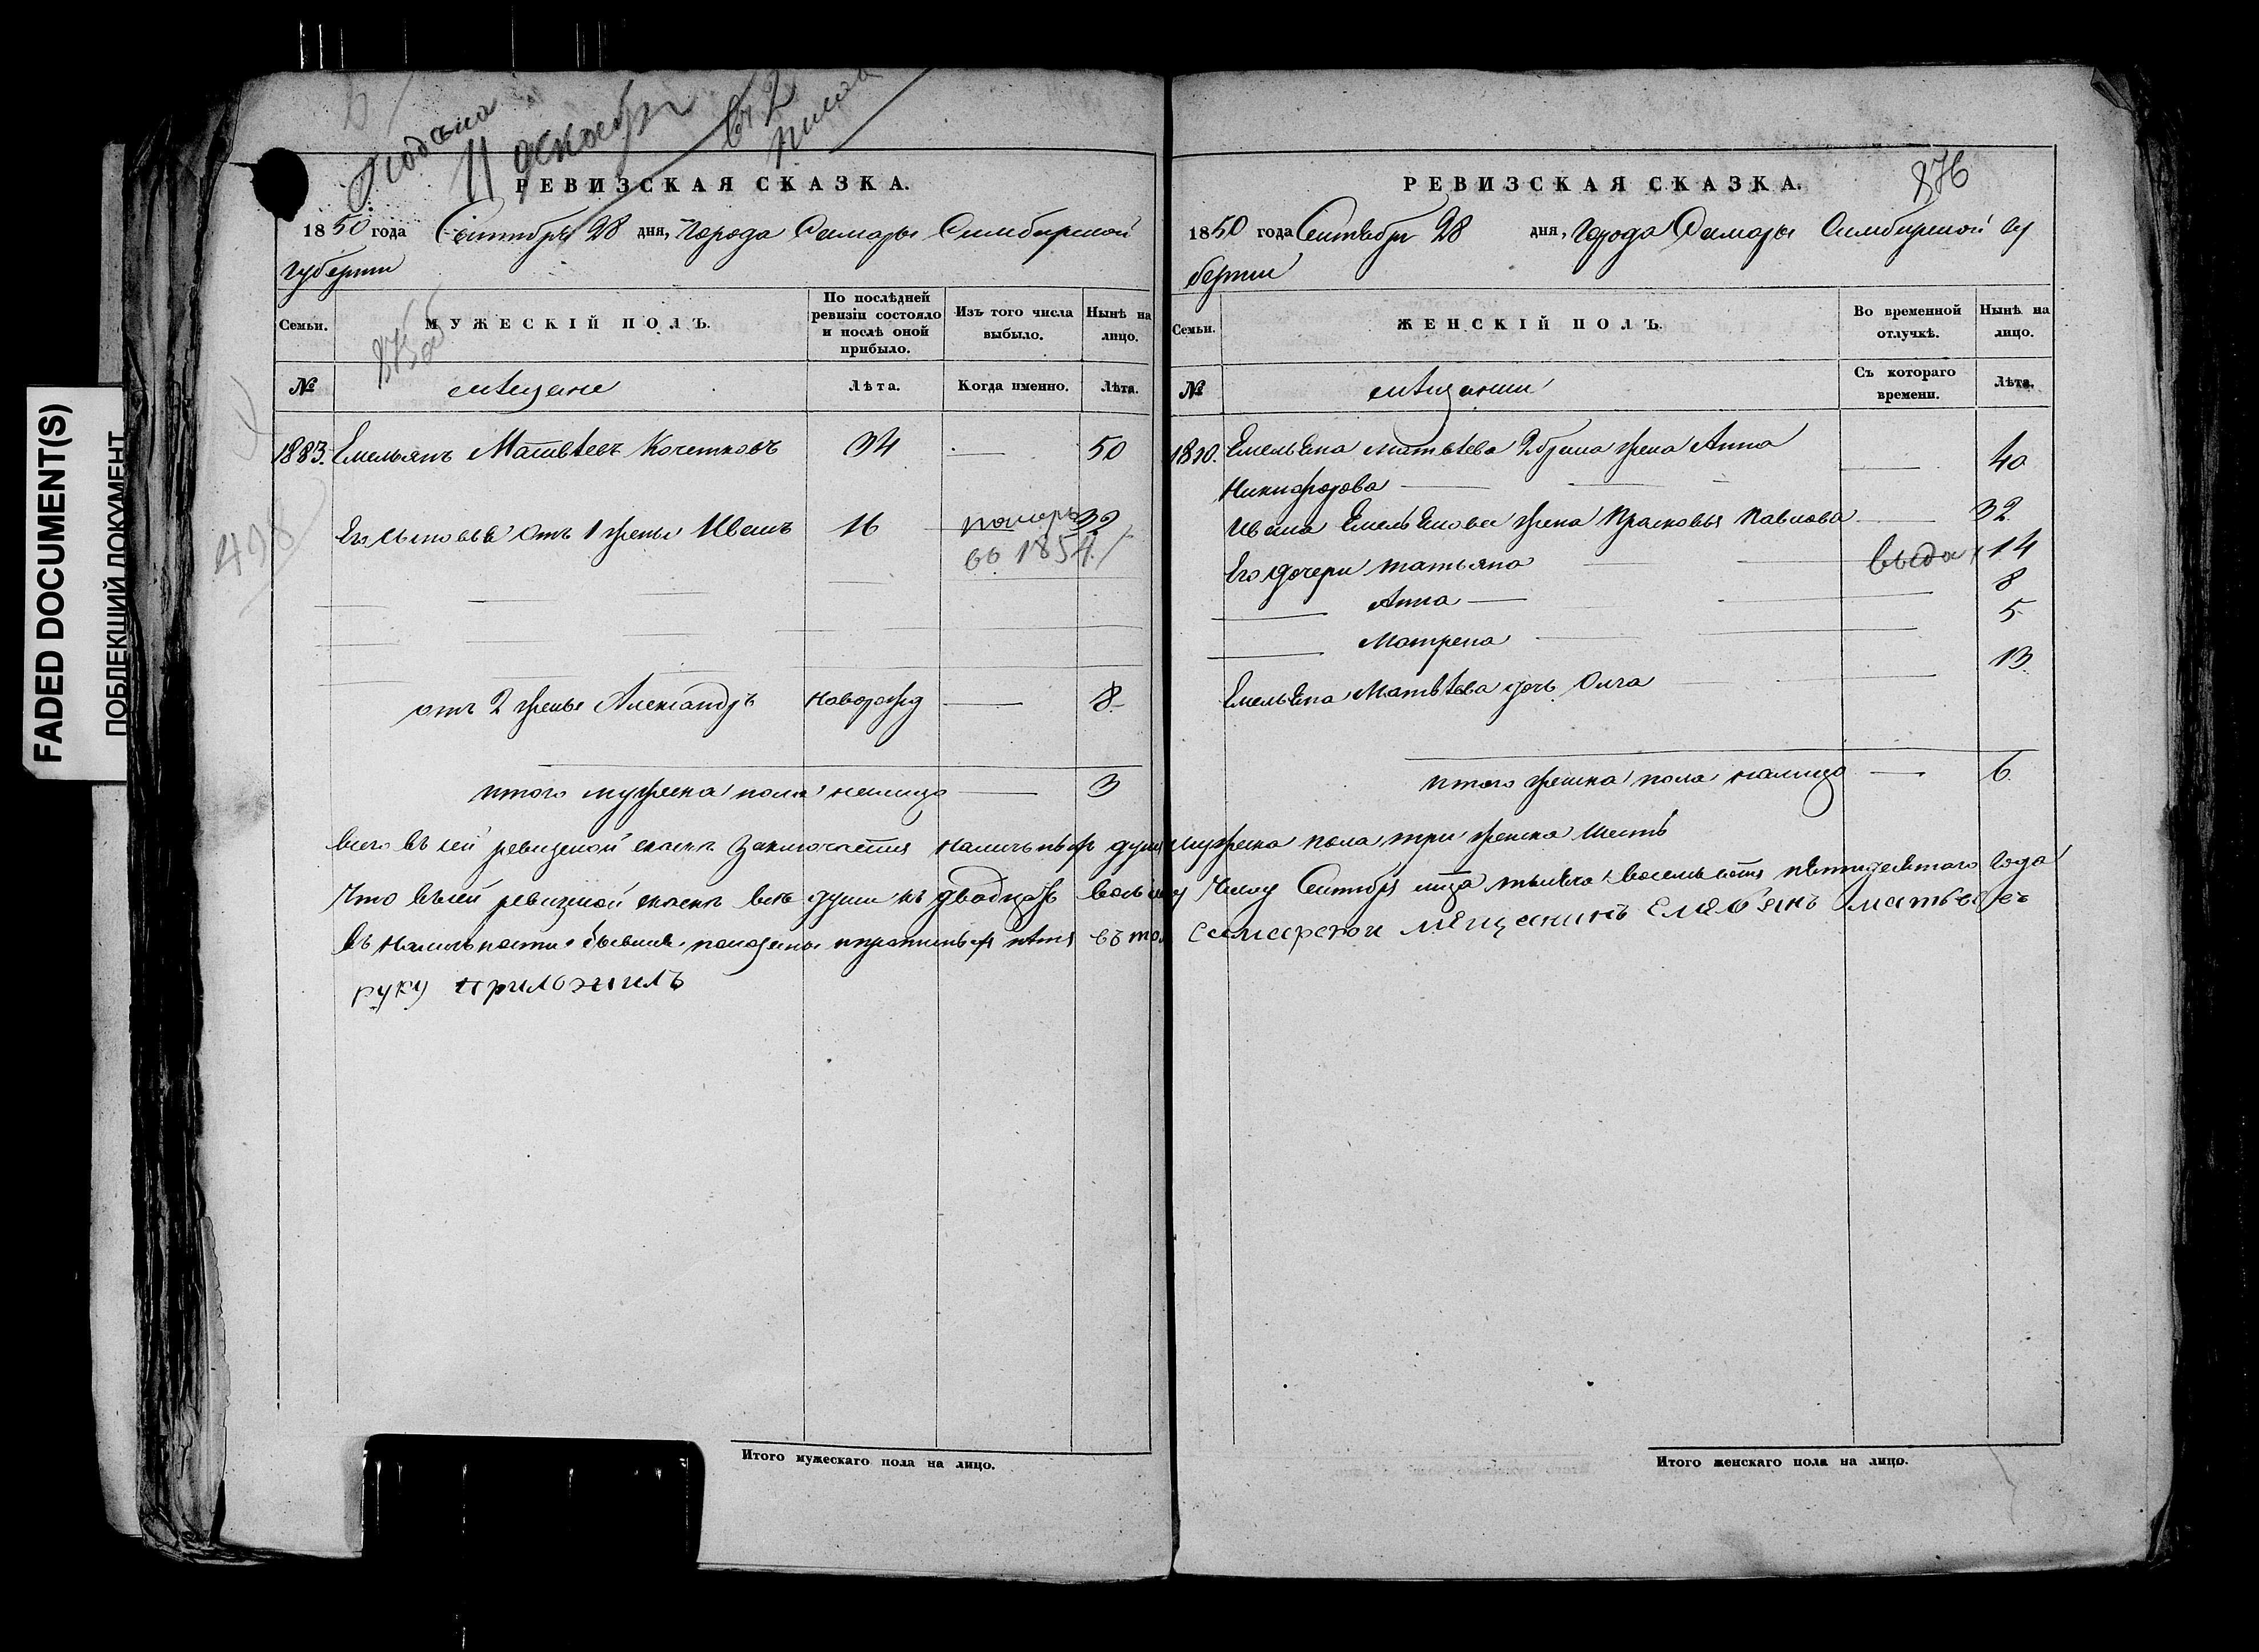 FADED DOCUMENT(S)
ПОБЛЕКШИЙ ДОКУМЕНТ
498
11 декабря
РЕВИЗСКАЯ СКАЗКА.
1850 года Сентября 28 дня, Города Самары Симбирской
губернии
Семьи.
МУЖЕСКІЙ ПОЛЪ.
По послѣдней ревизіи состояло и послѣ оной прибыло.
Изъ того числа выбыло.
Нынѣ на лицо.
№
мѣщане
Лѣта.
Когда именно.
Лѣта.
1883. Емельянъ Матвѣевъ Кочетковъ 34 — 50
Его сыновья отъ 1 жены Иванъ 16 померъ 32
во 1854
отъ 2 жены Александръ новорожд — 8
итого мужска пола налицо — 3
Итого мужескаго пола на лицо.
РЕВИЗСКАЯ СКАЗКА.
876
1850 года Сентября 28 дня, Города Самары Симбирской гу
бернии
Семьи.
ЖЕНСКІЙ ПОЛЪ.
Во временной отлучкѣ.
Нынѣ на лицо.
№
мѣщанки
Съ котораго времени.
Лѣта.
1810. Емельяна Матвѣева жена Анна — 40
Никифорова
Ивана Емельянова жена Прасковья Павлова — 32
Его дочери Татьяна 14
Анна — 8
Матрена 5
Емельяна Матвѣева дочь Олга 13
итого женска пола налицо — 6
всего въ сей ревизской сказкѣ заключается наличныхъ душъ мужска пола три женска шесть
Что въ сей ревизской сказкѣ всѣ души къ двадцать восьмому числу Сентября тысяча восемьсотъ пятидесятаго года
въ наличности бывшие показаны въ томъ самарской мещанинъ Емельянъ Матвеевъ
руку приложилъ
Итого женскаго пола на лицо.